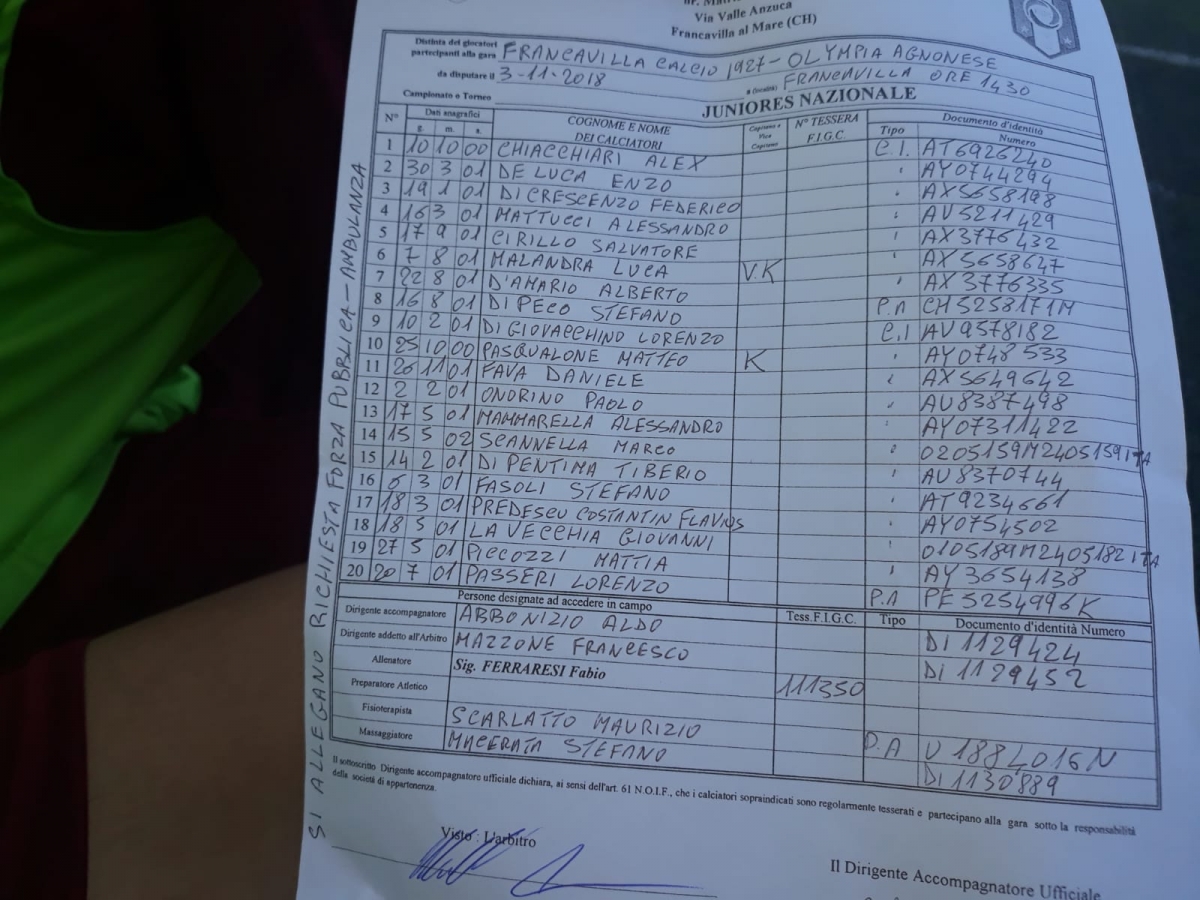 Via Valle Anzuca
Francavilla al Mare (CH)
Distinta dei giocatori partecipanti alla gara FRANCAVILLA CALCIO 1927 - OLYMPIA AGNONESE
da disputare il 3-11-2018 a (località) FRANCAVILLA ORE 1430
Campionato o Torneo JUNIORES NAZIONALE
N° Dati anagrafici g. m. a. COGNOME E NOME DEI CALCIATORI Capitano e Vice Capitano N° TESSERA F.I.G.C. Documento d'identità Tipo Numero
1 10 10 00 CHIACCHIARI ALEX C.I. AT6926240
2 30 3 01 DE LUCA ENZO AY0744294
3 19 1 01 DI CRESCENZO FEDERICO AX5658198
4 16 3 01 MATTUCCI ALESSANDRO AU5211429
5 17 9 01 CIRILLO SALVATORE AX3776432
6 7 8 01 MALANDRA LUCA V.K AX5658647
7 22 8 01 D'AMARIO ALBERTO AX3776335
8 16 8 01 DI PECO STEFANO P.A CH5258171M
9 10 2 01 DI GIOVACCHINO LORENZO C.I AV9578182
10 25 10 00 PASQUALONE MATTEO K AY0748533
11 26 11 01 FAVA DANIELE AX5649642
12 2 2 01 ONDRINO PAOLO AU8387498
13 17 5 01 MAMMARELLA ALESSANDRO AY07311422
14 15 5 02 SCANNELLA MARCO 0205159M2405159ITA
15 14 2 01 DI PENTIMA TIBERIO AU8370744
16 6 3 01 FASOLI STEFANO AT9234661
17 18 3 01 PREDESCU COSTANTIN FLAVIUS AY0754502
18 18 5 01 LA VECCHIA GIOVANNI 0105189M2405182ITA
19 27 5 01 PICCOZZI MATTIA AY3654138
20 20 7 01 PASSERI LORENZO P.A PE5254996K
Persone designate ad accedere in campo Tess.F.I.G.C. Tipo Documento d'identità Numero
Dirigente accompagnatore ABBONIZIO ALDO DI 1129424
Dirigente addetto all'Arbitro MAZZONE FRANCESCO DI 1129452
Allenatore Sig. FERRARESI Fabio 111350
Preparatore Atletico
Fisioterapista SCARLATTO MAURIZIO P.A U1884016N
Massaggiatore MACERATA STEFANO DI 1130889
Il sottoscritto Dirigente accompagnatore ufficiale dichiara, ai sensi dell'art. 61 N.O.I.F., che i calciatori sopraindicati sono regolarmente tesserati e partecipano alla gara sotto la responsabilità
della società di appartenenza.
Visto : L'arbitro
Il Dirigente Accompagnatore Ufficiale
SI ALLEGANO RICHIESTA FORZA PUBBLICA - AMBULANZA